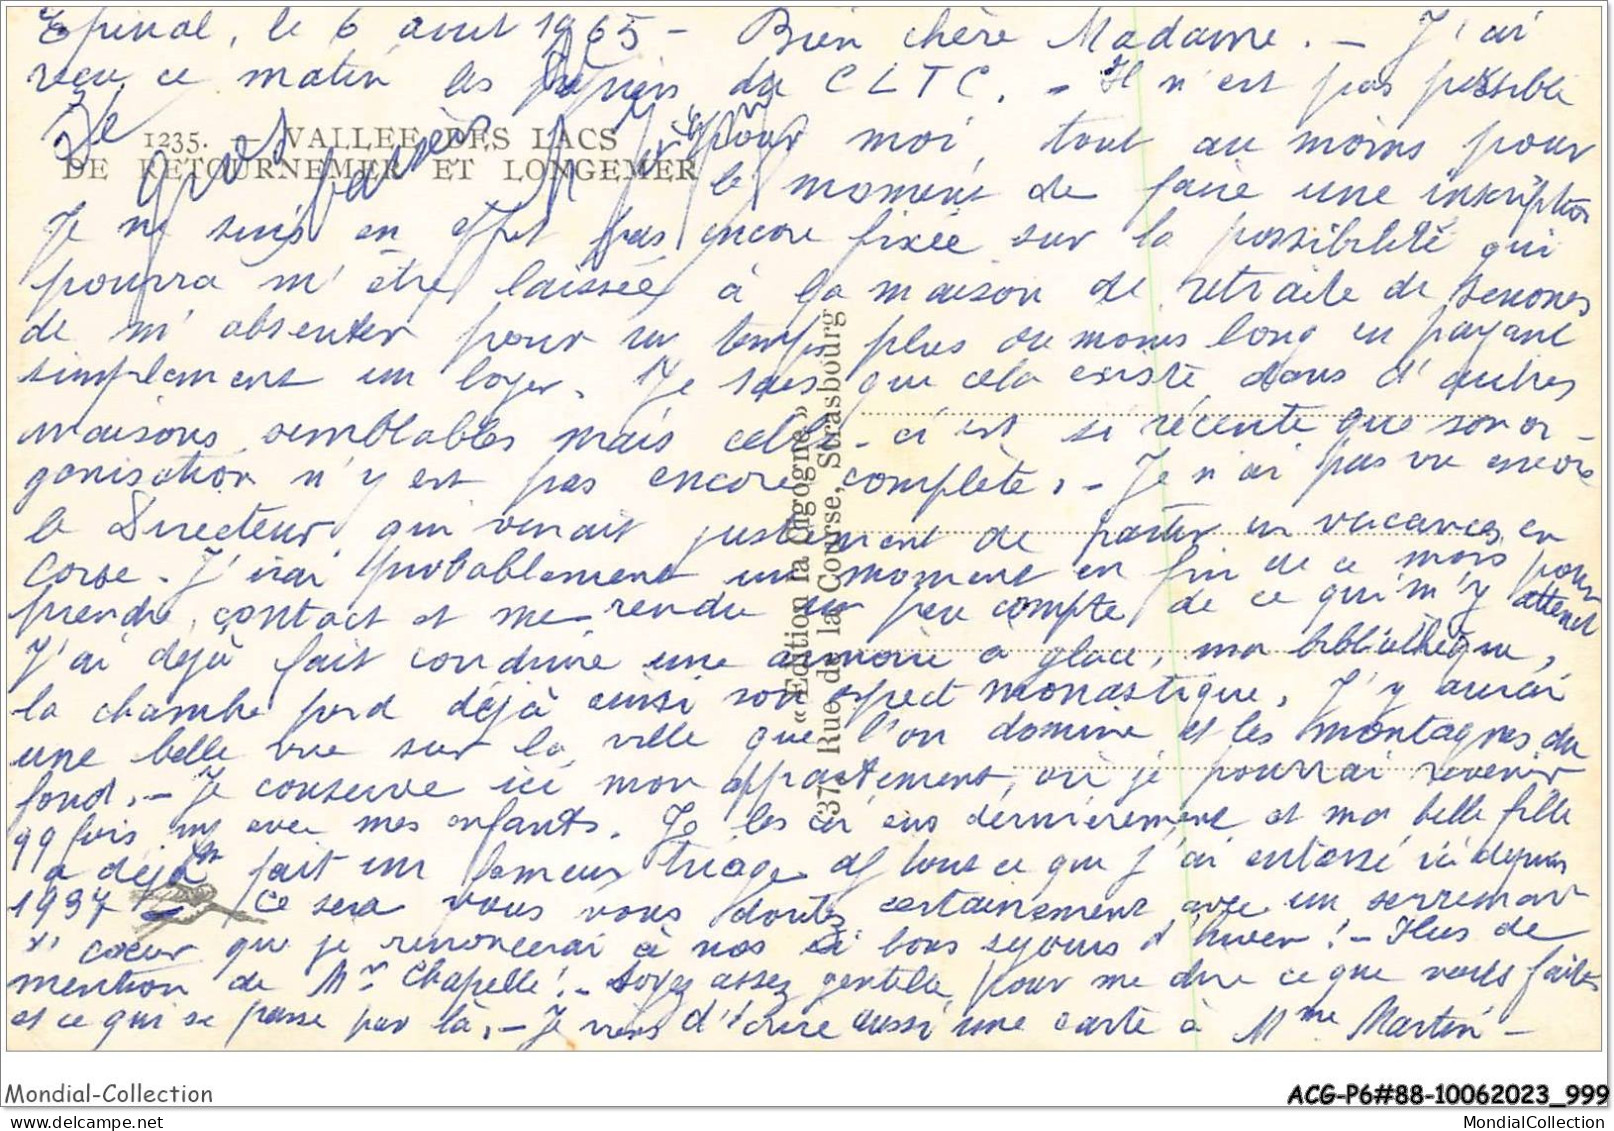 Epinal, le 6 aout 1965 - Bien chère Madame. - J'ai
reçu ce matin les du CLTC. - Il n'est pas possible
1235. - VALLEE DES LACS
DE RETOURNEMER ET LONGEMER
pour moi, tout au moins pour
le moment de faire une inscription
Je ne suis en effet pas encore fixée sur la possibilité qui
pourra m'être laissée à la maison de retraite de Senones
de m'absenter pour un temps plus ou moins long en payant
simplement un loyer. Je sais que cela existe dans d'autres
maisons semblables mais celle-ci est si récente que son or-
ganisation n'y est pas encore complète. - Je n'ai pas vu encore
le Directeur qui venait justement de partir en vacances en
Corse. - J'irai probablement un moment en fin de ce mois pour
prendre contact et me rendre un peu compte de ce qui m'y attend
J'ai déjà fait conduire une armoire à glace, ma bibliothèque,
la chambre perd déjà ainsi son aspect monastique, J'y aurai
une belle vue sur la ville que l'on domine et les montagnes du
fond. - Je conserve ici mon appartement, où je pourrai revenir
qq fois avec mes enfants. Je les ai eus dernièrement et ma belle fille
a déjà fait un fameux triage de tout ce que j'ai entassé ici depuis
1937 - Ce sera vous vous doutez certainement avec un serrement
d' cœur que je renoncerai à nos si bons séjours d'hiver! - Plus de
mention de Mr Chapelle! - Soyez assez gentille pour me dire ce que vous faites
et ce qui se passe par là. - Je viens d'écrire aussi une carte à Mme Martin -
«Edition la Cigogne»
37, Rue de la Course, Strasbourg
Mondial-Collection
ACG-P6#88-10062023_999
MondialCollection